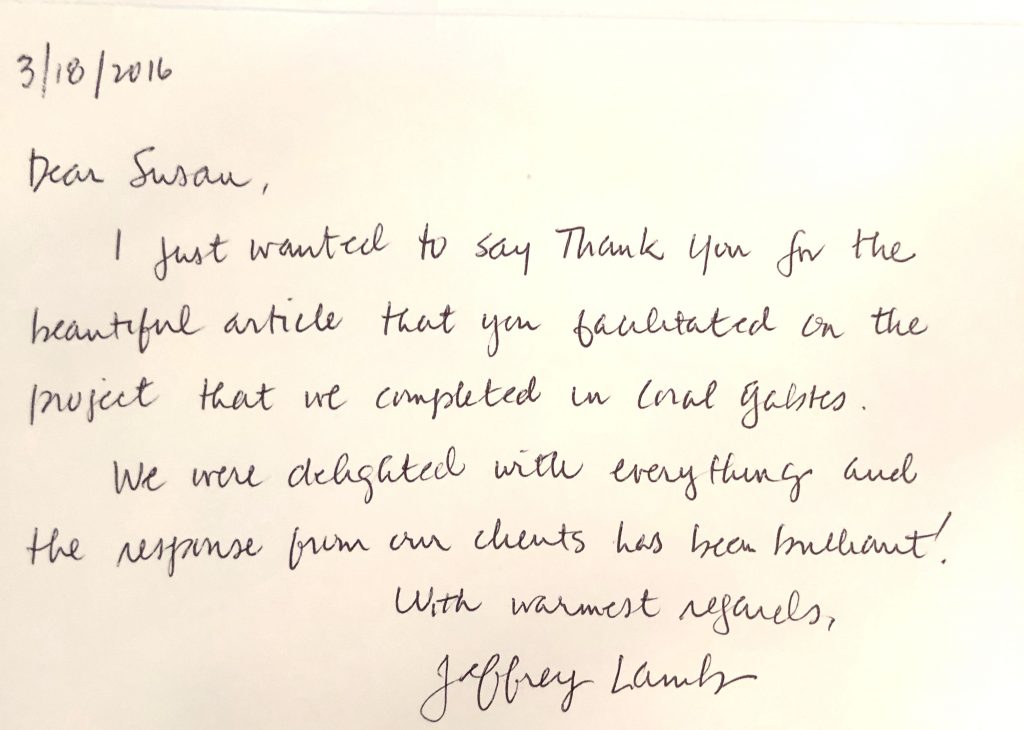 3/18/2016
Dear Susan,
I just wanted to say Thank you for the
beautiful article that you facilitated on the
project that we completed in Coral Gables.
We were delighted with everything and
the response from our clients has been brilliant!
With warmest regards,
Jeffrey Lamb